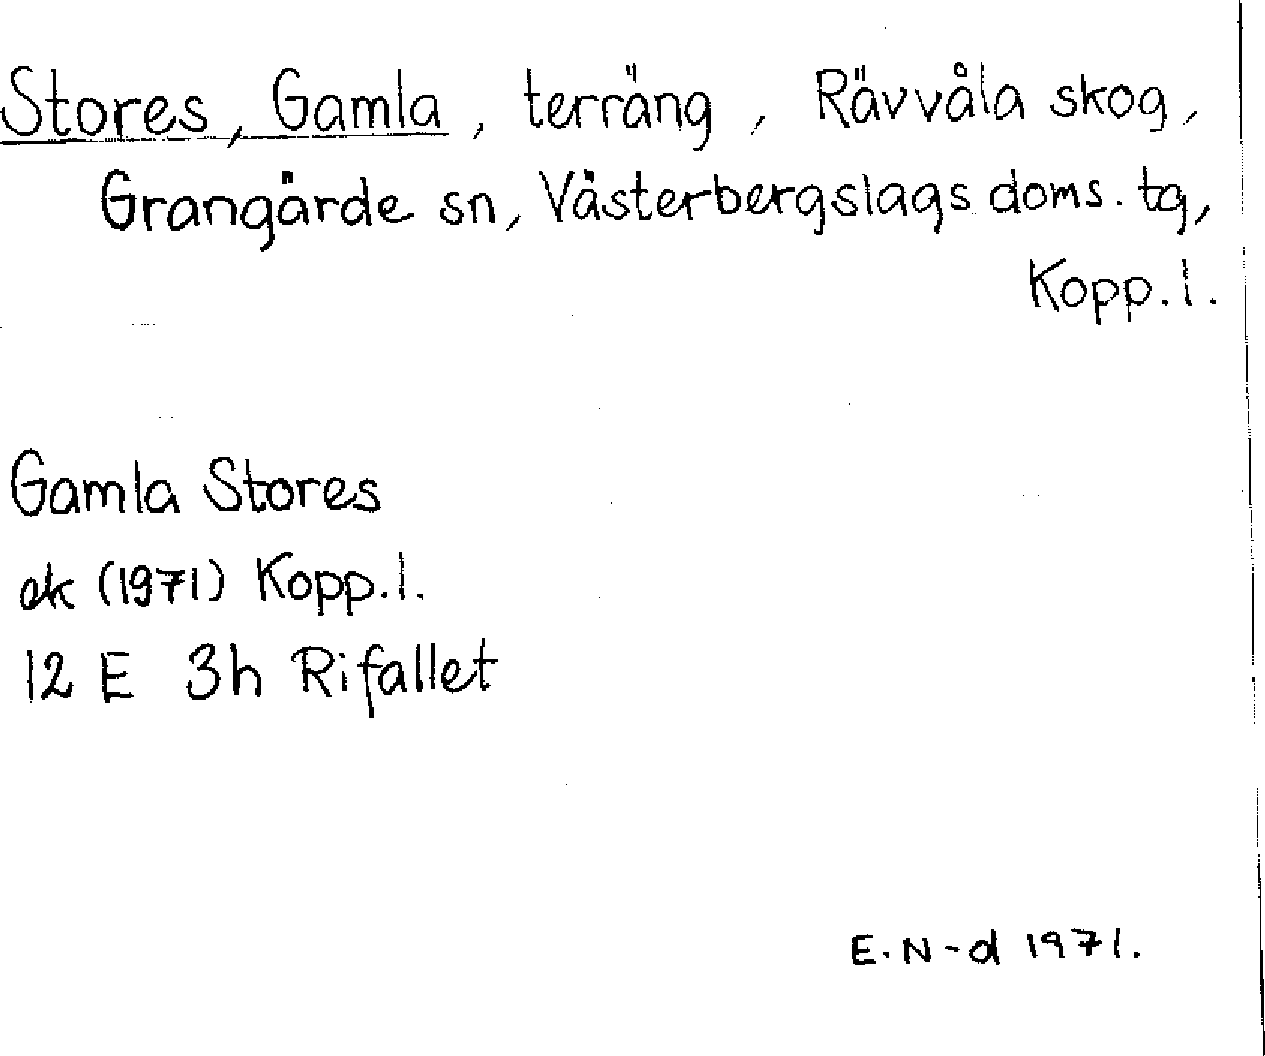 Stores, Gamla, terräng, Rävvåla skog,
Grangärde sn, Västerbergslags doms. tg,
Kopp. l.
Gamla Stores
ek (1971) Kopp. l.
12 E 3h Rifallet
E. N-d 1971.